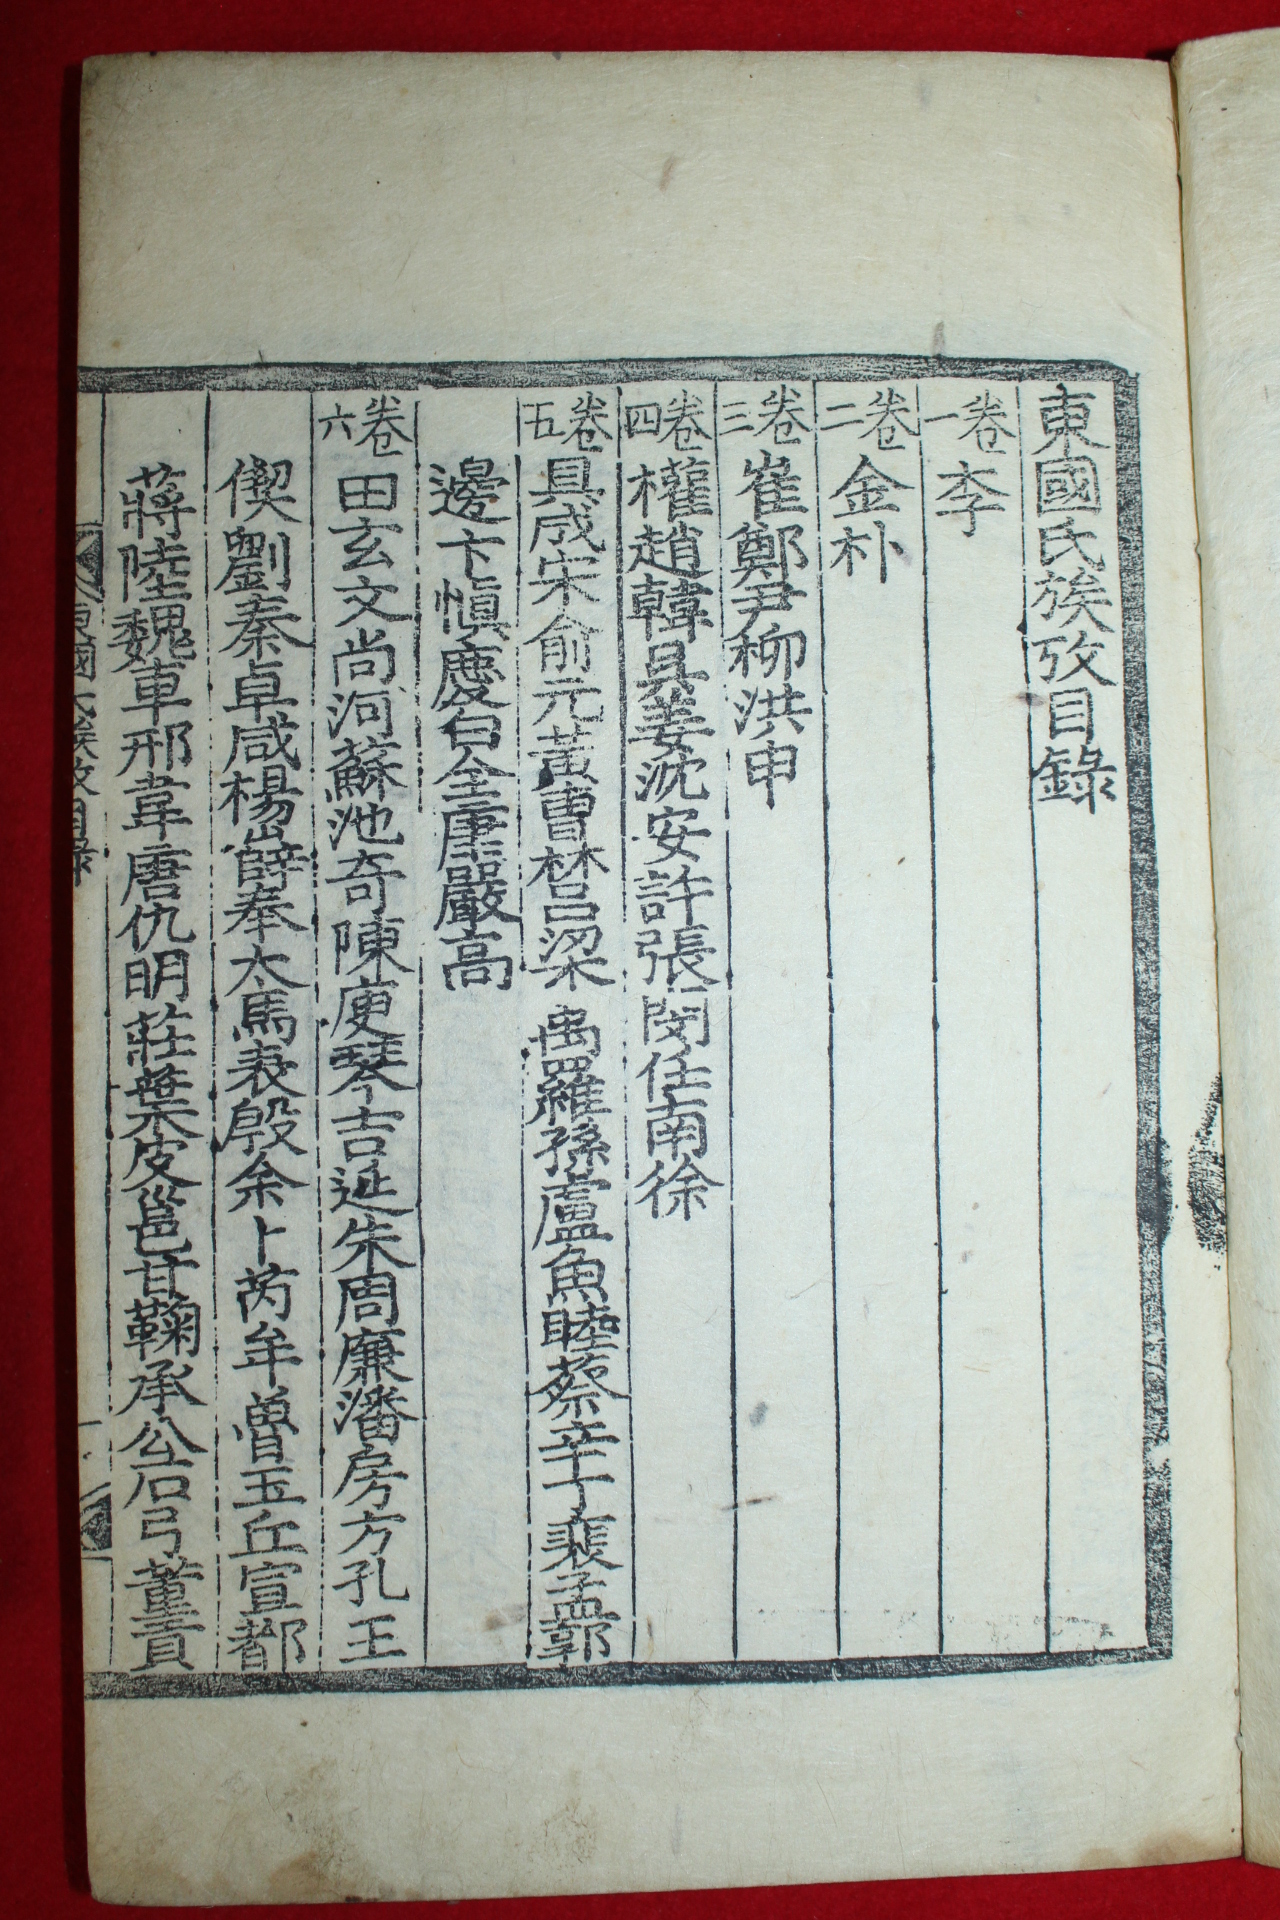 東國氏族攷目錄
卷一 李
卷二 金朴
卷三 崔鄭尹柳洪申
卷四 權趙韓吳姜沈安許張閔任南徐
卷五 具成宋俞元黃曺林呂梁禹羅孫盧魚睦蔡辛丁裵孟郭
邊卞愼慶白全康嚴高
卷六 田玄文尚河蘇池奇陳庾琴吉延朱周廉潘房方孔王
偰劉秦卓咸楊薛奉太馬表殷余卜芮牟曾玉丘宣都
蔣陸魏車邢韋唐仇明莊葉皮邕甘鞠承公石弓董
東國氏族攷目錄